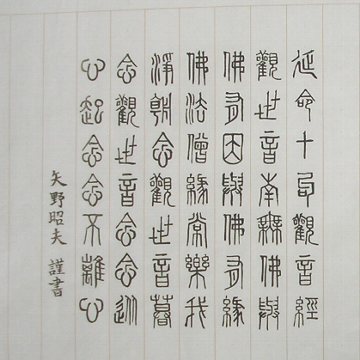 延命十句觀音經
觀世音南無佛與
佛有因與佛有緣
佛法僧緣常樂我
淨朝念觀世音暮
念觀世音念念從
心起念念不離心
矢野昭夫 謹書